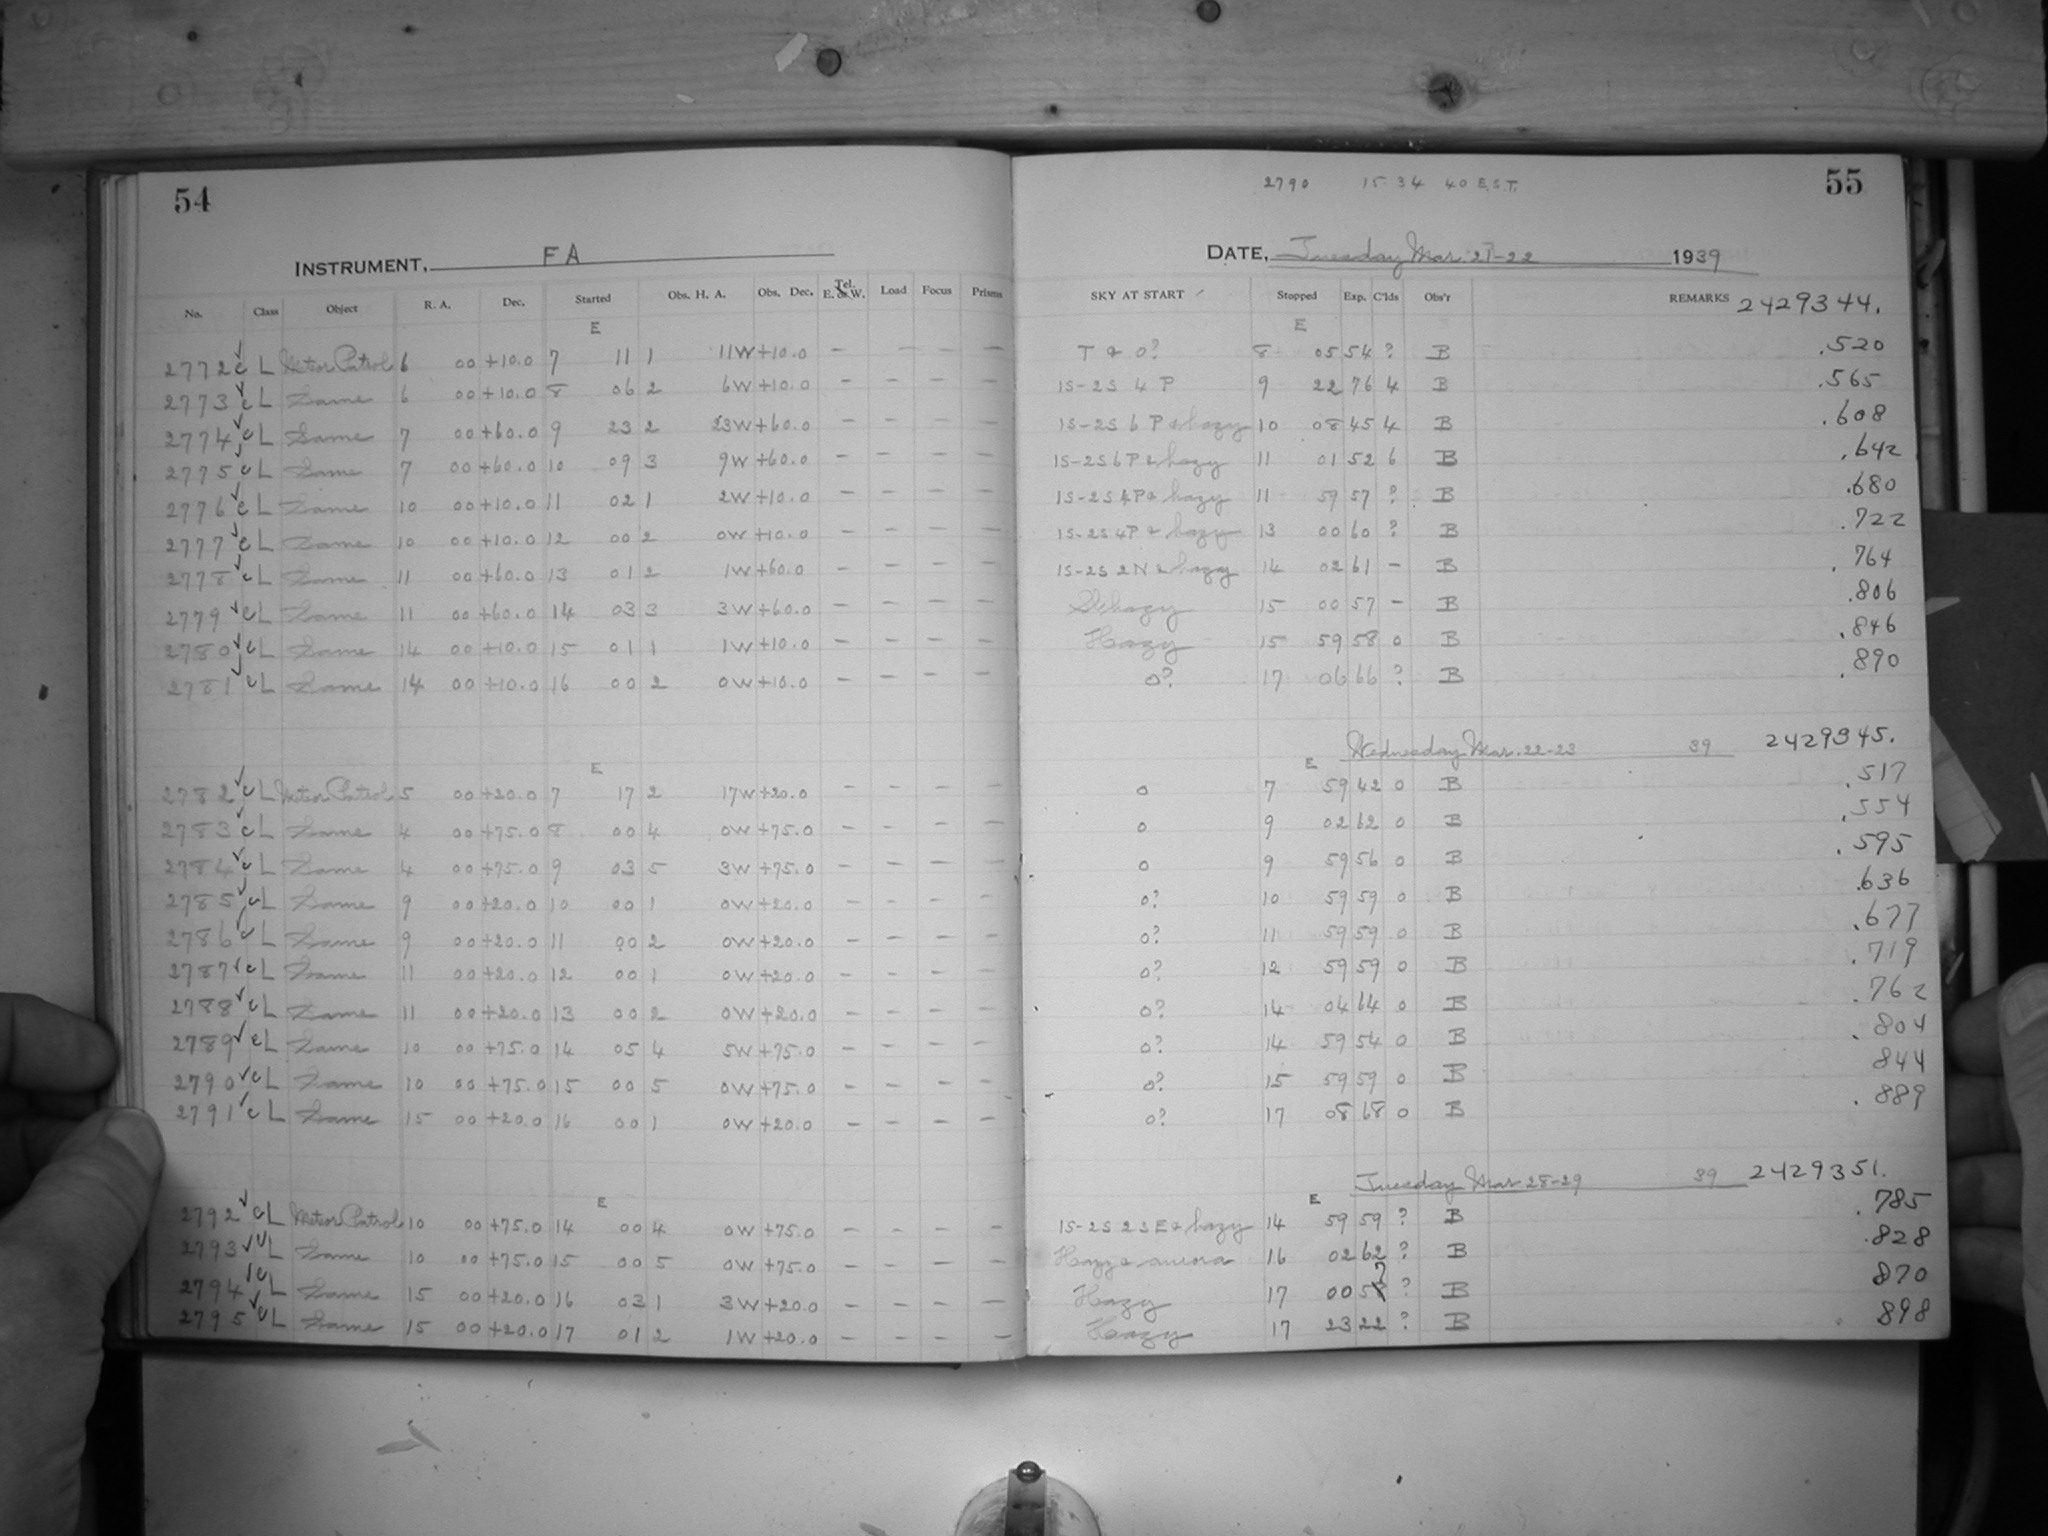 54
INSTRUMENT, FA
No. Class Object R. A. Dec. Started Obs. H. A. Obs. Dec. Tel. E. or W. Load Focus Prisms
E
2772 c L Meteor Patrol 6 00 +10.0 7 11 1 11W +10.0 — — — —
2773 c L Same 6 00 +10.0 8 06 2 6W +10.0 — — — —
2774 c L Same 7 00 +60.0 9 23 2 23W +60.0 — — — —
2775 c L Same 7 00 +60.0 10 09 3 9W +60.0 — — — —
2776 c L Same 10 00 +10.0 11 02 1 2W +10.0 — — — —
2777 c L Same 10 00 +10.0 12 00 2 0W +10.0 — — — —
2778 c L Same 11 00 +60.0 13 01 2 1W +60.0 — — — —
2779 c L Same 11 00 +60.0 14 03 3 3W +60.0 — — — —
2780 c L Same 14 00 +10.0 15 01 1 1W +10.0 — — — —
2781 c L Same 14 00 +10.0 16 00 2 0W +10.0 — — — —
E
2782 c L Meteor Patrol 5 00 +20.0 7 17 2 17W +20.0 — — — —
2783 c L Same 4 00 +75.0 8 00 4 0W +75.0 — — — —
2784 c L Same 4 00 +75.0 9 03 5 3W +75.0 — — — —
2785 c L Same 9 00 +20.0 10 00 1 0W +20.0 — — — —
2786 c L Same 9 00 +20.0 11 00 2 0W +20.0 — — — —
2787 c L Same 11 00 +20.0 12 00 1 0W +20.0 — — — —
2788 c L Same 11 00 +20.0 13 00 2 0W +20.0 — — — —
2789 c L Same 10 00 +75.0 14 05 4 5W +75.0 — — — —
2790 c L Same 10 00 +75.0 15 00 5 0W +75.0 — — — —
2791 c L Same 15 00 +20.0 16 00 1 0W +20.0 — — — —
E
2792 c L Meteor Patrol 10 00 +75.0 14 00 4 0W +75.0 — — — —
2793 c L Same 10 00 +75.0 15 00 5 0W +75.0 — — — —
2794 c L Same 15 00 +20.0 16 03 1 3W +20.0 — — — —
2795 c L Same 15 00 +20.0 17 01 2 1W +20.0 — — — —
2790 15 34 40 E.S.T.
55
DATE, Tuesday Mar. 21-22 1939
SKY AT START Stopped Exp. C'lds Obs'r REMARKS 2429344.
E
T & 0? 8 05 54 ? B .520
1S-2S 4 P 9 22 76 4 B .565
1S-2S 6 P & hazy 10 08 45 4 B .608
1S-2S 6P & hazy 11 01 52 6 B .642
1S-2S 4P & hazy 11 59 57 ? B .680
1S-2S 4P & hazy 13 00 60 ? B .722
1S-2S 2N & hazy 14 02 61 — B .764
hazy 15 00 57 — B .806
Hazy 15 59 58 0 B .846
0? 17 06 66 ? B .890
Wednesday Mar. 22-23 39 2429345.
E
0 7 59 42 0 B .517
0 9 02 62 0 B .554
0 9 59 56 0 B .595
0? 10 59 59 0 B .636
0? 11 59 59 0 B .677
0? 12 59 59 0 B .719
0? 14 04 64 0 B .762
0? 14 59 54 0 B .804
0? 15 59 59 0 B 844
0? 17 08 68 0 B .889
Tuesday Mar. 28-29 39 2429351.
E
1S-2S 2SE & hazy 14 59 59 ? B .785
Hazy & aurora 16 02 62 ? B .828
Hazy 17 00 57 ? B 870
Hazy 17 23 22 ? B .898